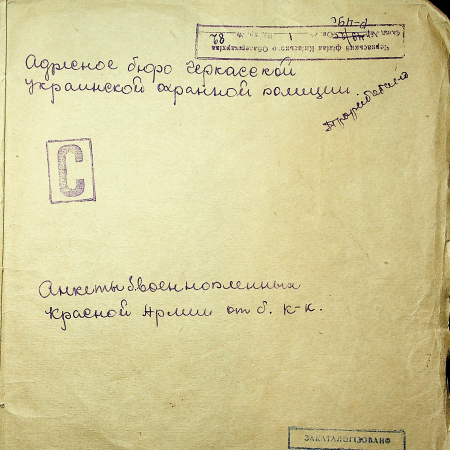 Р-49с
Черкаський філіал Київського Облдержархіва
Фонд № Оп. № 1 Од. зб. № 82
Адресное бюро Черкасской
украинской охранной полиции.
С
Анкеты б/военнопленных
Красной Армии от б. к-к.
ЗАКАТАЛОГІЗОВАНО